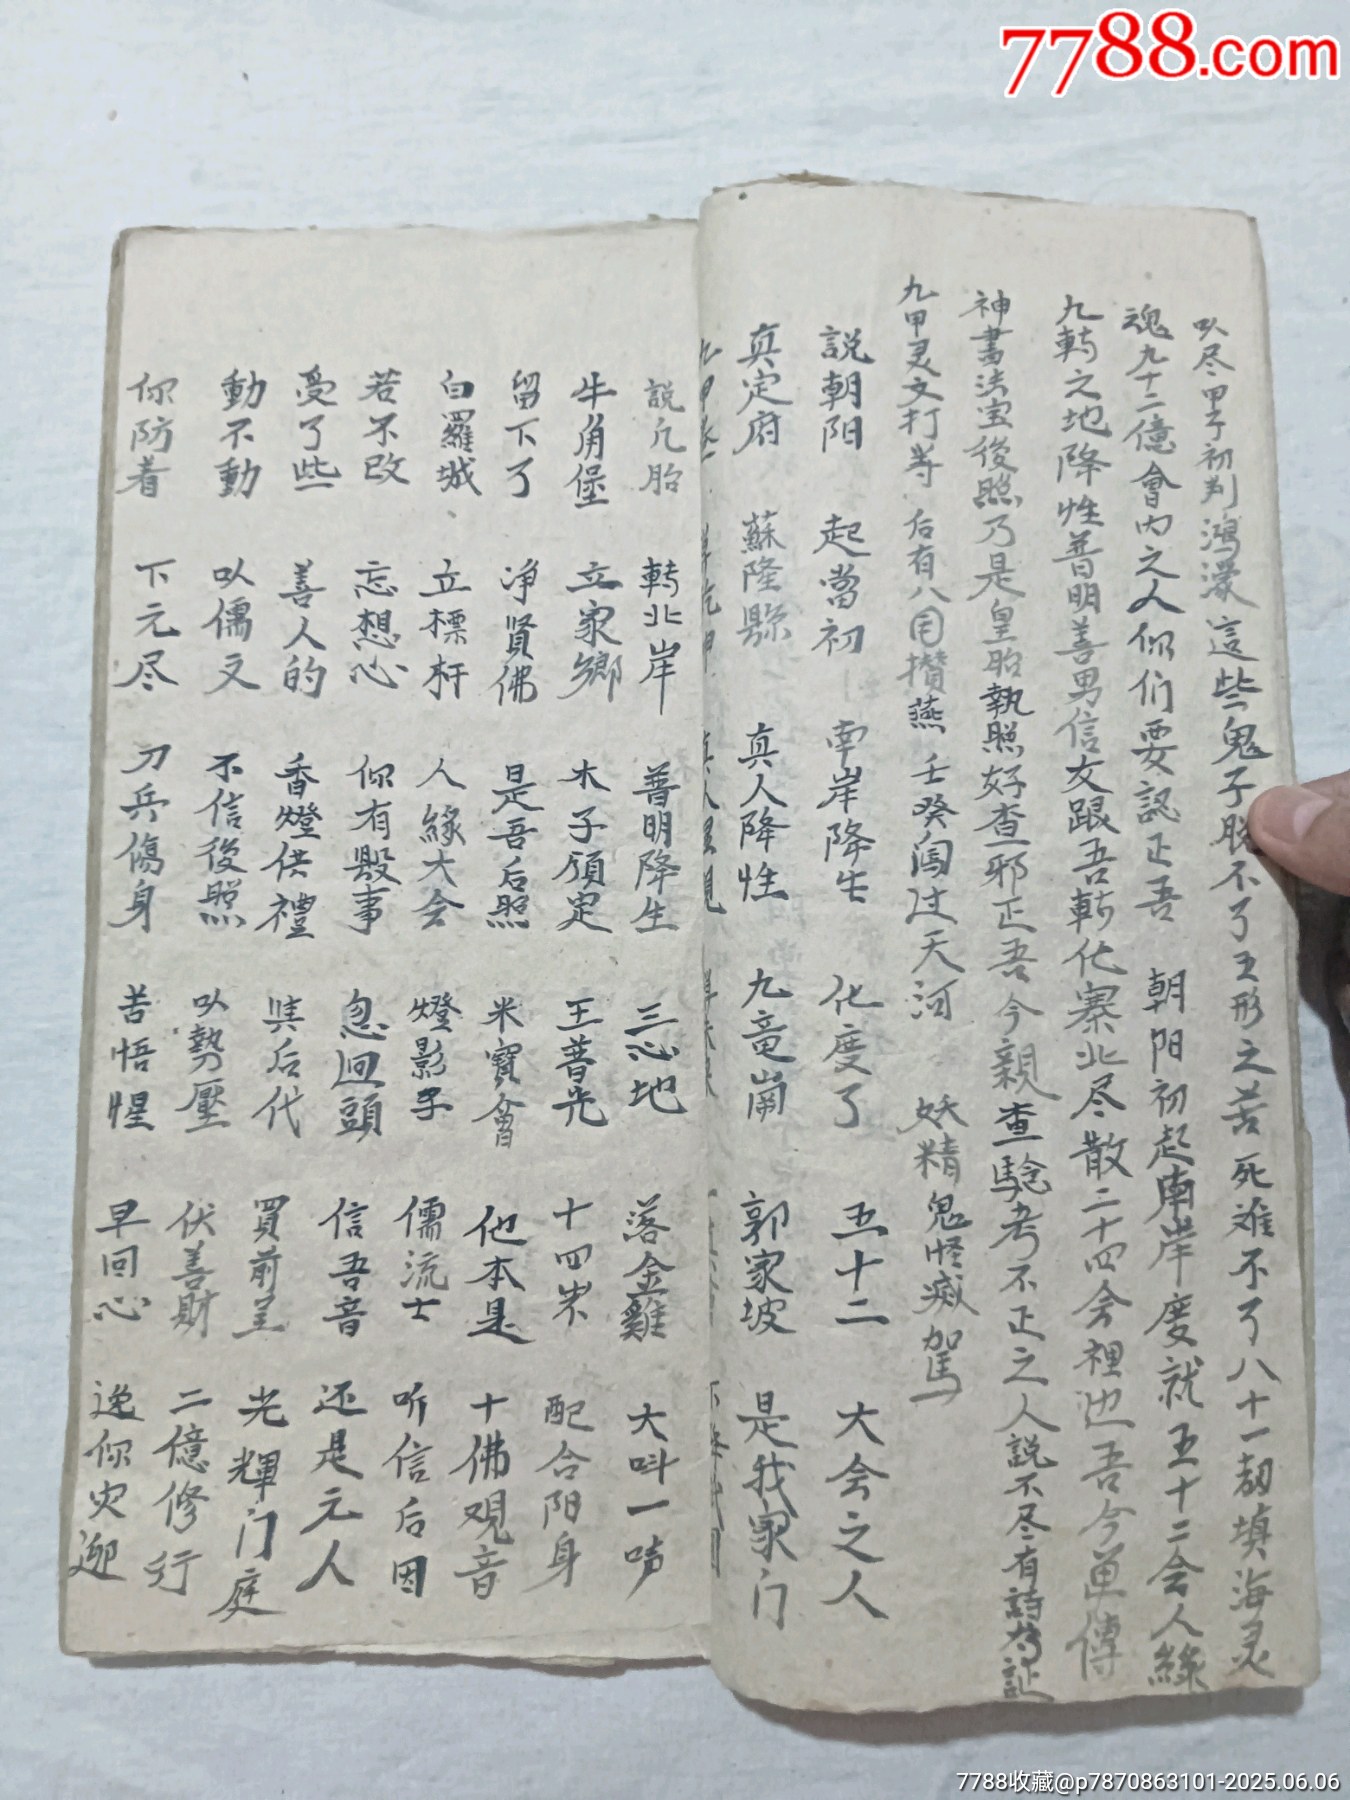 7788.com
以尽甲子初判鴻濛這些鬼子脱不了五形之苦死难不了八十一劫填海灵
魂九十二億會内之人你们要認正吾 朝阳初起南岸度就五十二会人緣
九轉之地降性普明善男信女跟吾転化寨北尽散二十四会裡边吾今単傳
神書法宝後照乃是皇胎執照好查邪正吾今親查騐考不正之人説不尽有詩為証
九甲灵文打芳 后有八 攒燕 壬癸闯过天河 妖精鬼怪 駕
説朝阳 起當初 南岸降生 化度了 五十二 大会之人
真定府 蘇隆縣 真人降性 九竜崗 郭家坡 是我家门
説凡胎 轉北岸 普明降生 三心地 落金雞 大呌一声
牛角堡 立家鄉 木子領定 王普光 十四岁 配合阳身
留下了 净賢佛 是吾后照 米寶會 他本是 十佛观音
白羅城 立標杆 人緣大会 燈影子 儒流士 听信后因
若不改 忘想心 你有毀事 忽迴頭 信吾音 还是元人
受了些 善人的 香燈供禮 后代 買前呈 光輝门庭
動不動 以儒文 不信後照 以勢壓 伏善財 二億修行
你防着 下元尽 刀兵傷身 苦悟惺 早回心 逸你灾迎
7788收藏@p7870863101-2025.06.06